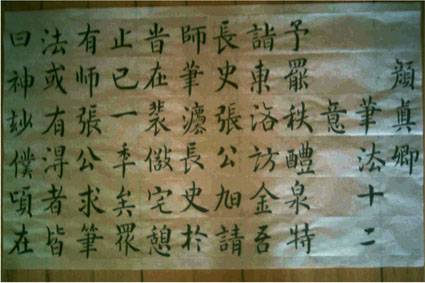 顔真卿
筆法十二
意
予罷秩醴泉特
詣東洛訪金吾
長史張公旭請
師筆灋長史於
旹在裴儆宅憩
止已一秊矣眾
有师張公求筆
法或有得者皆
曰神玅僕頃在